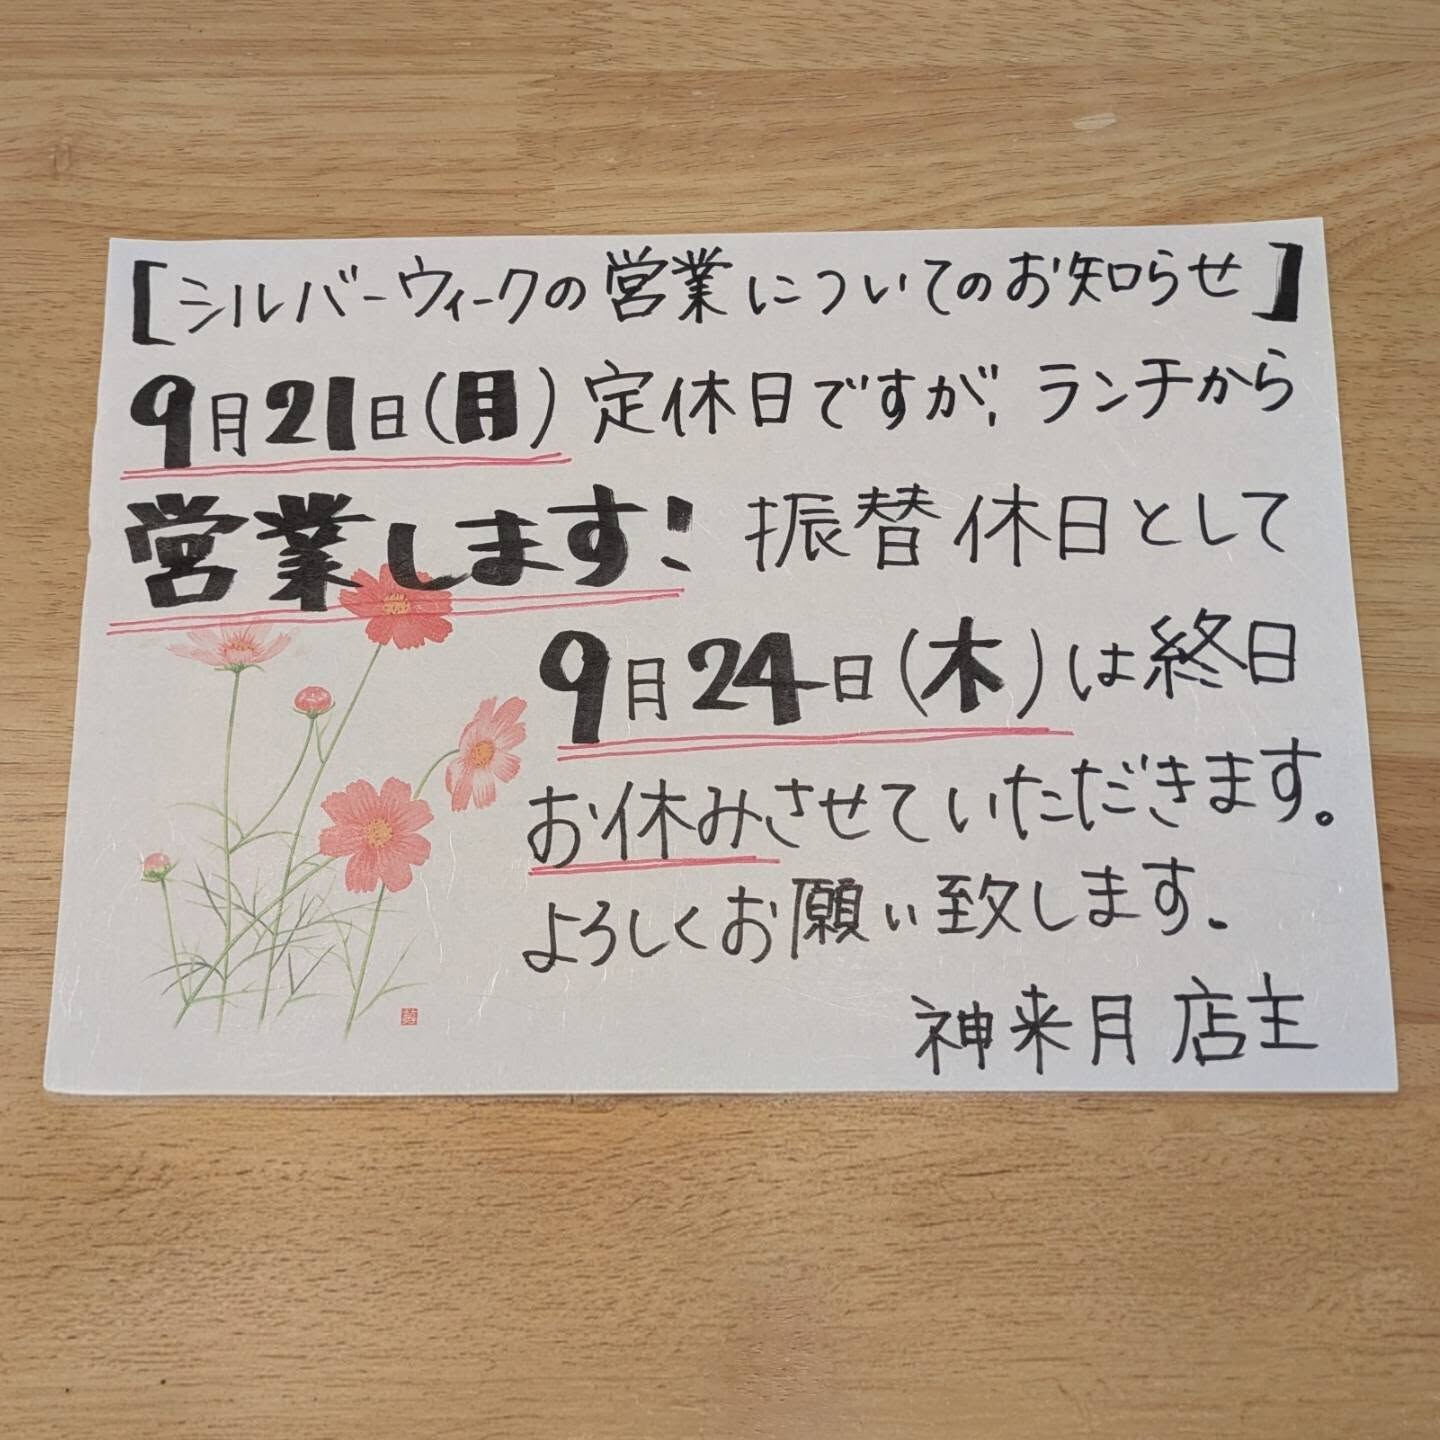 【シルバーウィークの営業についてのお知らせ】
9月21日(月)定休日ですが、ランチから
営業します！振替休日として
9月24日(木)は終日
お休みさせていただきます。
よろしくお願い致します。
神来月 店主